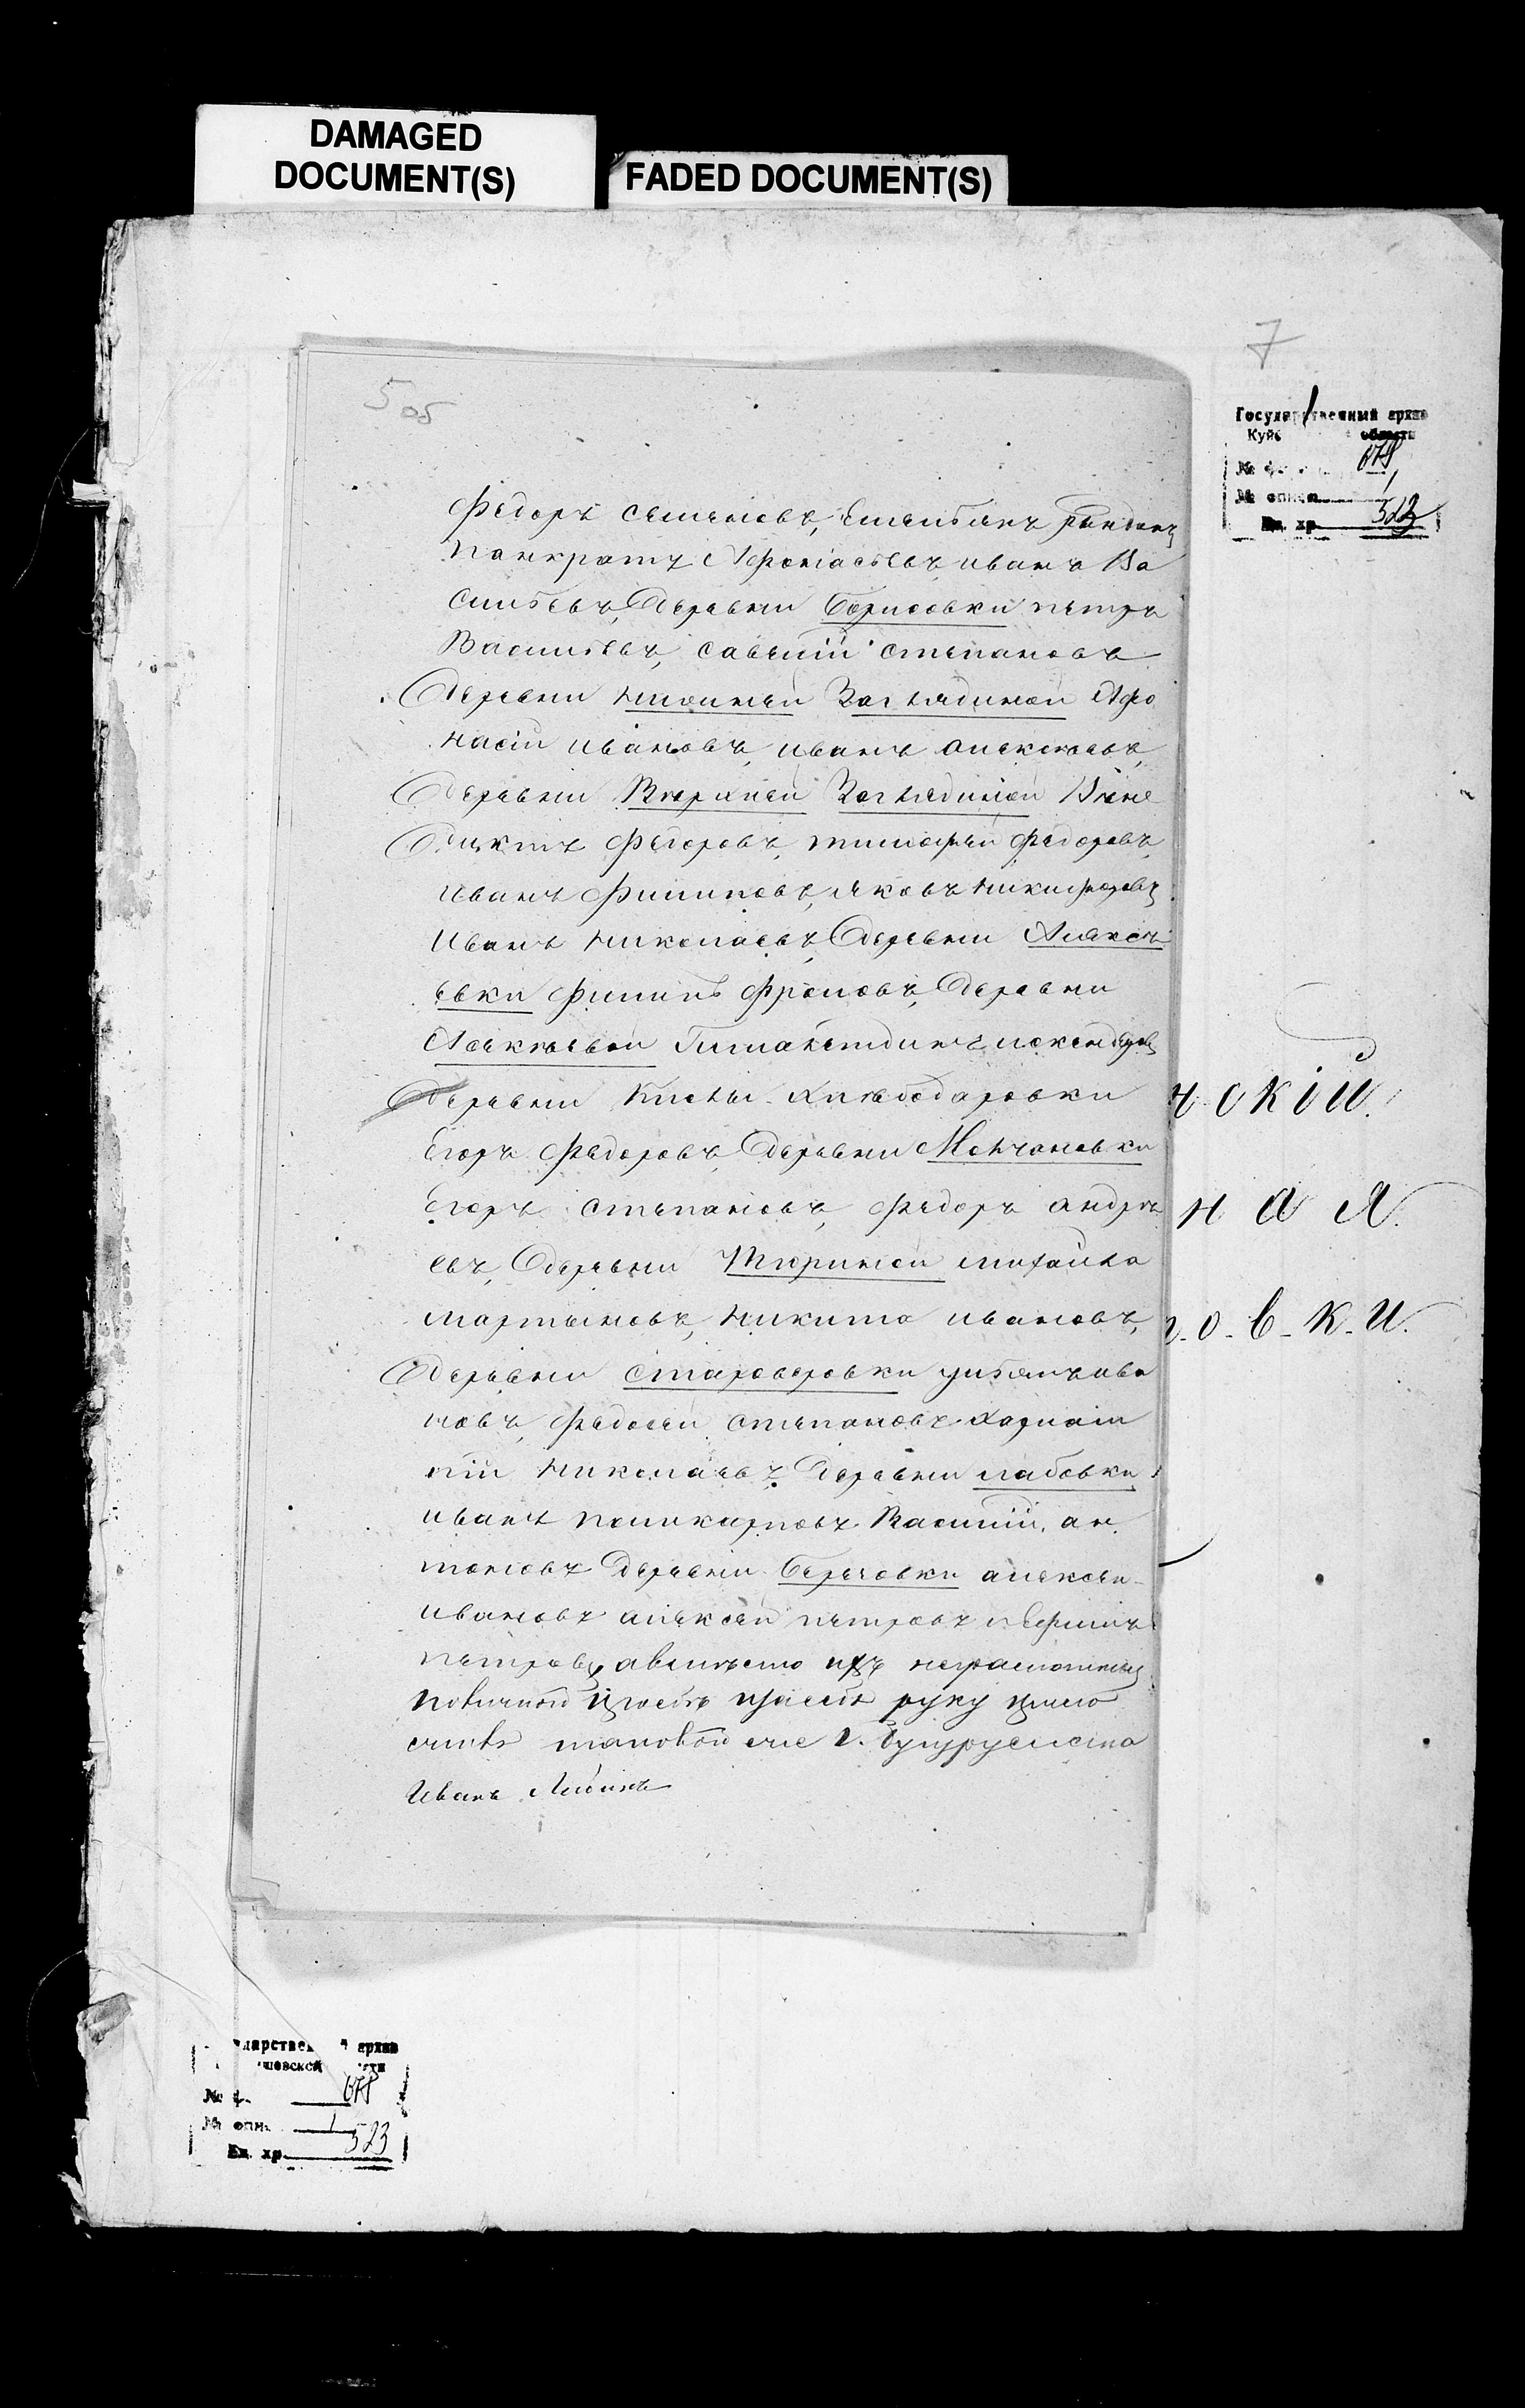 DAMAGED
DOCUMENT(S)
FADED DOCUMENT(S)
7
5 об
Государственный архив
№ 678
№ описи 1
Ед. хр. 523
Федоръ Семеновъ, Емельянъ
Панкратъ Афонасьевъ, иванъ Ва
сильевъ, Деревни Борисовки петръ
Васильевъ, савелій степановъ
Деревни нижней Заглядиной Афо
насій ивановъ, иванъ алексеевъ,
Деревни Верхней Заглядиной Вене
диктъ Федоровъ, тимофей федоровъ,
иванъ Филиповъ, яковъ никифоровъ
иванъ николаевъ, Деревни Алексе
евки филипъ Фроловъ, Деревни
Асекеевой
Деревни Кислы Хлебодаровки
Егоръ Федоровъ, Деревни Молчановки
Егоръ степановъ, федоръ андре
евъ, Деревни Тюриной михайла
мартыновъ, никита ивановъ,
Деревни староверовки ульянъ ива
новъ, федосей степановъ
ній николаевъ, Деревни лабовки
иванъ поликарповъ Василій ан
тоновъ Деревни алексей
ивановъ алексей петровъ и Ефимъ
петровъ, авместо ихъ неграмотныхъ
поличной прозбе руку прило
жилъ таковой же г. Бугуруслана
Иванъ
чскій.
н а я.
о-в-к-и.
архив
№ ф. 678
№ опи. 1
Ед. хр. 523